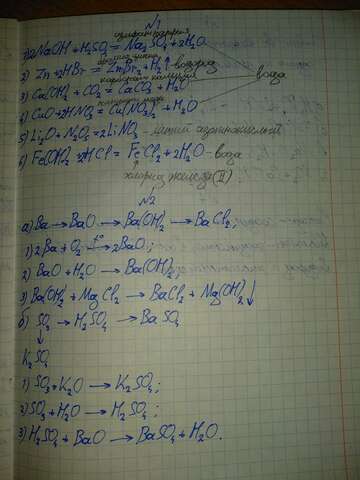 N1
сульфат натрия
1) 2NaOH + H₂SO₄ = Na₂SO₄ + 2H₂O
бромид цинка
2) Zn + 2HBr = ZnBr₂ + H₂↑ водород
карбонат кальция вода
3) Ca(OH)₂ + CO₂ = CaCO₃ + H₂O
4) CuO + 2HNO₃ = Cu(NO₃)₂ + H₂O
5) Li₂O + N₂O₅ = 2LiNO₃ - литий азотнокислый
6) Fe(OH)₂ + 2HCl = FeCl₂ + 2H₂O - вода
хлорид железа (II)
N2
а) Ba → BaO → Ba(OH)₂ → BaCl₂;
1) 2Ba + O₂ →t° 2BaO;
2) BaO + H₂O → Ba(OH)₂;
3) Ba(OH)₂ + MgCl₂ → BaCl₂ + Mg(OH)₂↓
б) SO₃ → H₂SO₄ → BaSO₄
↓
K₂SO₄
1) SO₃ + K₂O → K₂SO₄;
2) SO₃ + H₂O → H₂SO₄;
3) H₂SO₄ + BaO → BaSO₄ + H₂O.